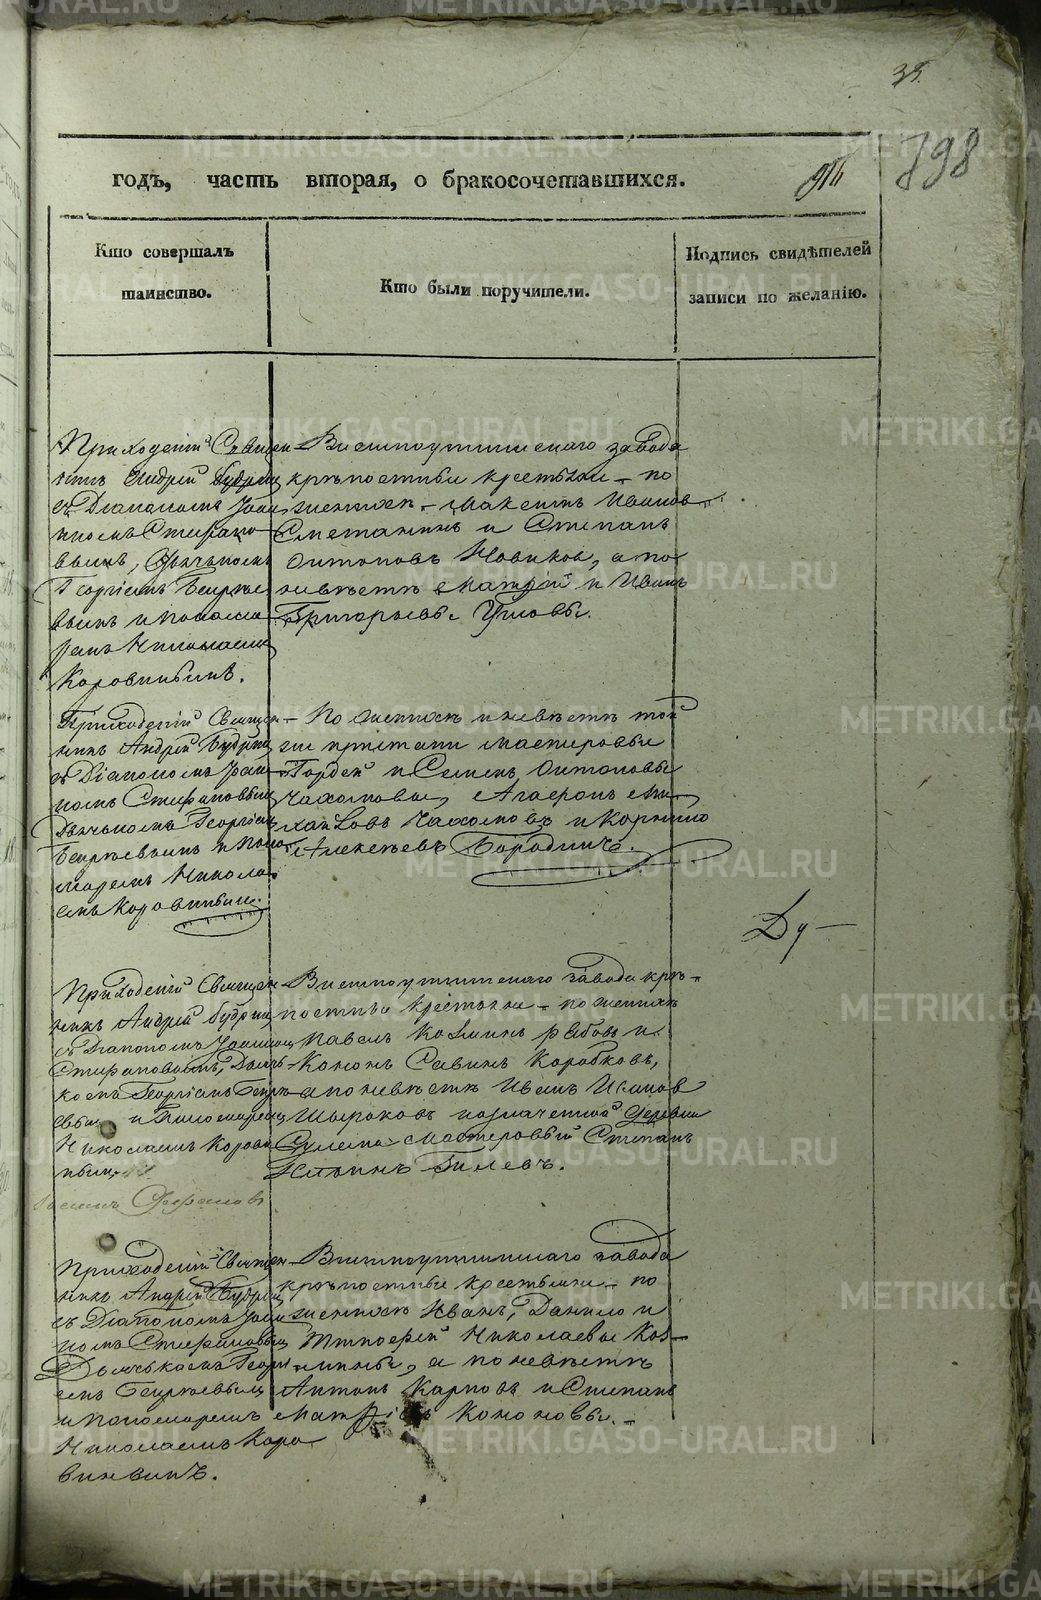 798
годъ, часть вторая, о бракосочетавшихся.
Кто совершалъ
таинство.
Кто были поручители.
Подпись свидѣтелей
записи по желанію.
Приходскій Священ
никъ Андрей Будрин
съ Діакономъ Іоан
номъ Стефано
вымъ, Дьячкомъ
Георгіемъ
вымъ и понома
ремъ Николаемъ
Коровинымъ.
Висимоуткинскаго завода
крѣпостные крестьяне – по
женихѣ – Максимъ Ивановъ
Сметанинъ и Степанъ
Антоновъ Новиковъ, а по
невѣстѣ Матвѣй и Иванъ
Григорьевы
Приходскій Священ
никъ Андрей Будрин
съ Діакономъ Іоан
номъ Стефановымъ
Дьячкомъ Георгіемъ
и поно
маремъ Никола
емъ Коровинымъ.
– По женихѣ и невѣстѣ той
же пристани мастеровые
Гордей и Семенъ Антоновы
Ми
хайловъ и Корнило
Алексѣевъ
Приходскій Священ
никъ Андрей Будрин
съ Діакономъ Іоанном
Стефановымъ, Дьяч
комъ Георгіемъ
и Пономаремъ
Николаемъ Корови
нымъ
Висимоуткинскаго завода крѣ–
постные крестьяне – по женихѣ
Павелъ Козминъ Рябовъ и
Кононъ Савинъ Коробковъ,
а по невѣстѣ Иванъ Ивановъ
Широковъ и означенной деревни
мастеровый Степанъ
Ильинъ Гилевъ.
Ду—
Приходскій Священ
никъ Андрей Будрин
съ Діакономъ Іоан
номъ Стефановым
Дьячкомъ Георгі
емъ
и пономаремъ
Николаемъ Коро
винымъ.
Висимоуткинскаго завода
крѣпостные крестьяне – по
женихѣ Иванъ, Данило и
Тимофей Николаевы Коз–
мины, а по невѣстѣ
Антонъ Карповъ и Степанъ
Кононовы. –
METRIKI.GASO-URAL.RU